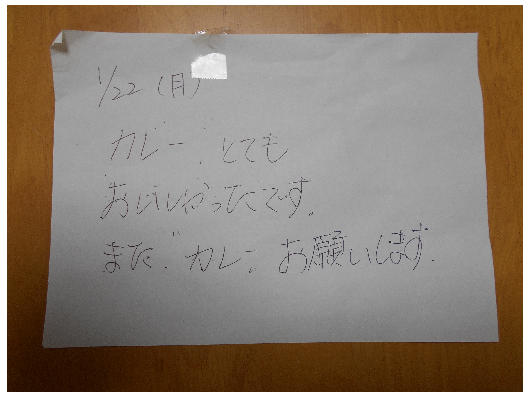 1/22（月）
カレー、とても
おいしかったです。
また、カレー、お願いします。